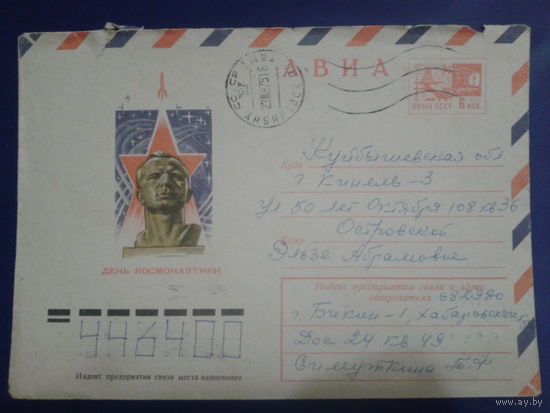 АВИА
ПОЧТА СССР
6 коп.
Куда Куйбышевская обл.
г. Кинель-3
ул 50 лет Октября 108 кв 36
Кому Островской
Эльзе Абрамовне
ДЕНЬ КОСМОНАВТИКИ
Индекс предприятия связи и адрес
отправителя 682980
г. Бикин-1, Хабаровского кр
Дос 24 кв 49
Симуткина Т.Ф
446400
Индекс предприятия связи места назначения
www.ay.by